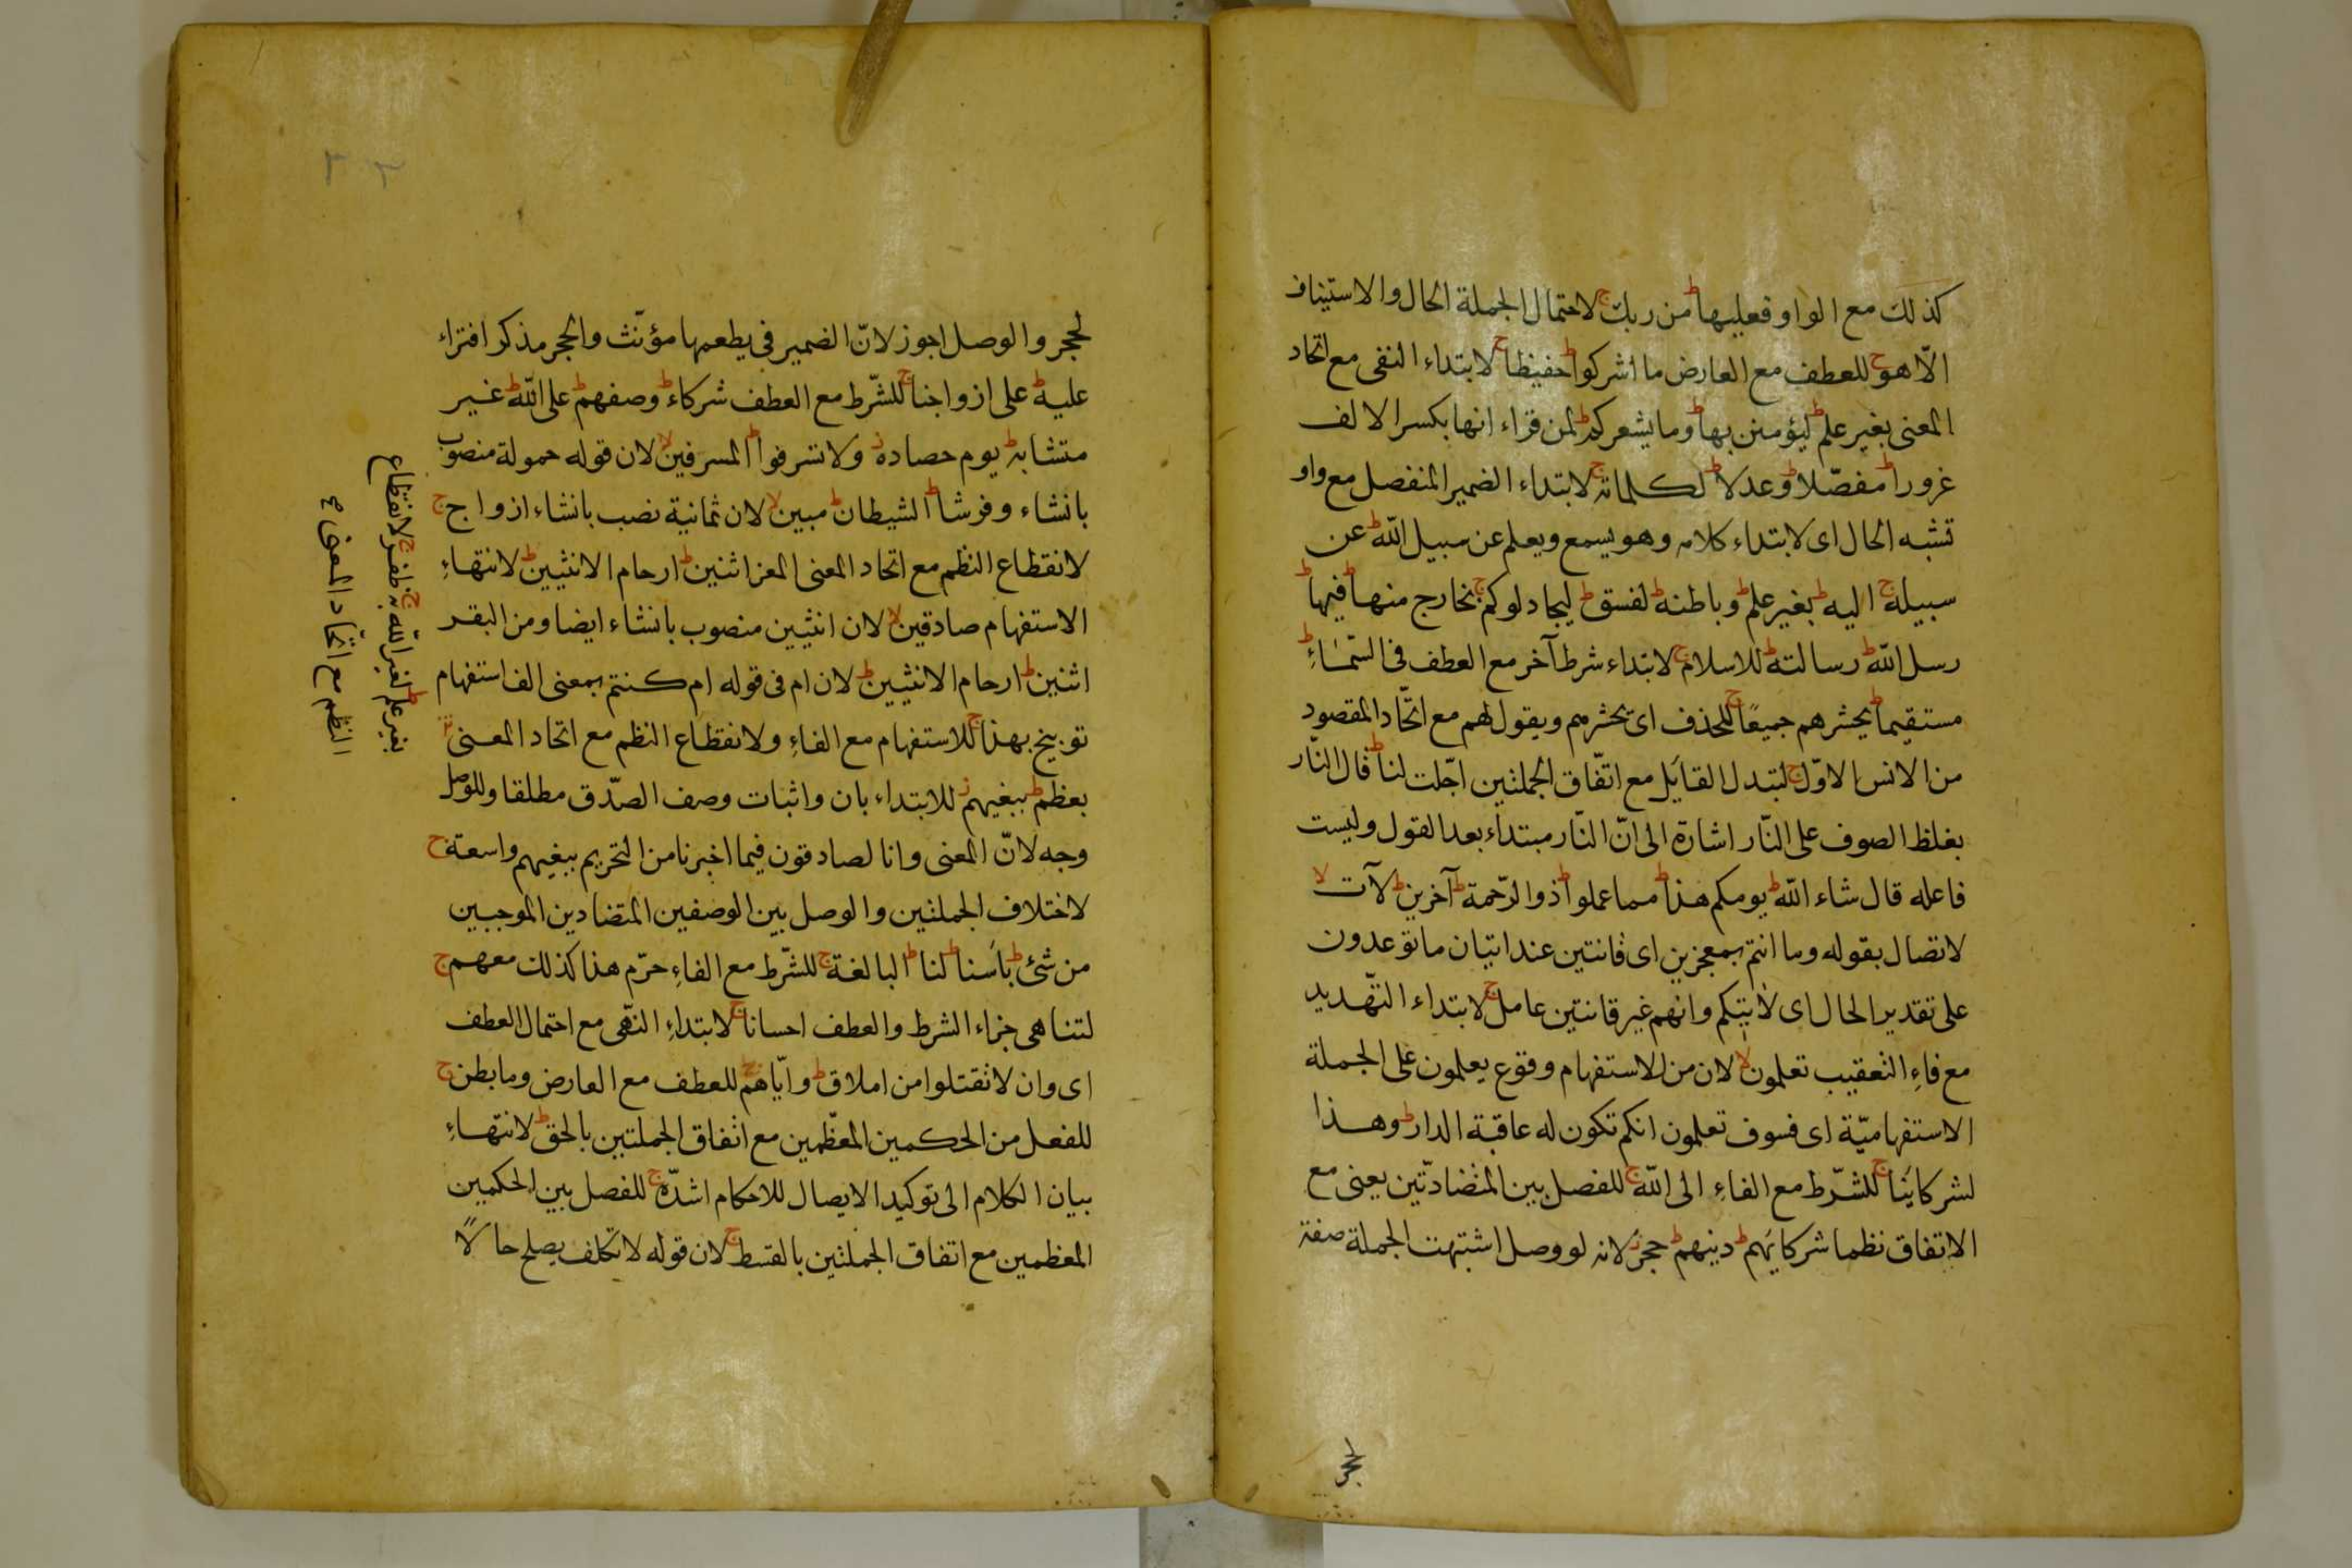 كذلك مع الواو فعليها ط من ربك ج لاحتمال الجملة الحال والاستيناف
الّا هو ج للعطف مع العارض ما اشركوا ط حفيظا ج لابتداء النفى مع اتحاد
المعنى بغير علم ط ليؤمنن بها ط وما يشعركم ط لمن قراء انها بكسر الالف
غرورا ط مفصّلا ط وعدلا ط لكلماته ج لابتداء الضمير المنفصل مع واو
تشبه الحال اى لابتداء كلامه وهو يسمع ويعلم عن سبيل اللّه ط عن
سبيله ج اليه ط بغير علم ط وباطنه ط لفسق ط ليجادلوكم ج بخارج منها ط فيها ط
رسل اللّه ط رسالته ط للاسلام ج لابتداء شرط آخر مع العطف فى السّمآءِ ط
مستقيما ط يحشرهم جميعًا ج للحذف اى يحشرهم ويقول لهم مع اتّحاد المقصود
من الانس الاوّل ج لتبدل القايل مع اتّفاق الجملتين اجّلت لنا ط قال النّار
بغلظ الصوف على النّار اشارة الى انّ النّار مبتداء بعد القول وليست
فاعله قال شاء اللّه ط يومكم هذا ط مما عملوا ط ذو الرّحمة ط آخرين ط لآت لا
لاتصال بقوله وما انتم بمعجزين اى فانتين عند اتيان ما توعدون
على تقدير الحال اى لاتيتكم وانهم غير فانتين عامل ج لابتداء التّهديد
مع فاءِ التعقيب تعلمون لا لان من الاستفهام وقوع يعلمون على الجملة
الاستفهاميّة اى فسوف تعلمون انكم تكون له عاقبة الدار ط وهذا
لشركاينَا ج للشّرط مع الفاءِ الى اللّه ج للفصل بين المتضادّتين يعنى مع
الاتفاق نظما شركايَهم ط دينهم ط حجر ز لانه لو وصل اشتبهت الجملة صفة
لحجر
لحجر والوصل اجوز لانّ الضمير فى يطعمها مؤنّث والحجر مذكر افتراء
عليه ط على ازواجنا ج للشّرط مع العطف شركاء ط وصفهم ط على اللّه ط غير
متشابه ط يوم حصاده ز ولا تسرفوا ط المسرفين لا لان قوله حمولة منصوب
بانشاء وفرشا ط الشيطان ط مبين لا لان ثمانية نصب بانشاء ازواج ج
لانقطاع النظم مع اتحاد المعنى المعز اثنين ط ارحام الانثيين ط لانتهاءِ
الاستفهام صادقين لا لان انثيين منصوب بانشاء ايضا ومن البقر
اثنين ط ارحام الانثيين ط لان ام فى قوله ام كنتم بمعنى الف استفهام
توبيخ بهذا ج للاستفهام مع الفاءِ ولانقطاع النظم مع اتحاد المعنى
بعظم ط ببغيهم ز للابتداء بان واثبات وصف الصّدق مطلقا وللوصل
وجه لانّ المعنى وانا لصادقون فيما اخبرنا من التحريم ببغيهم واسعة ج
لاختلاف الجملتين والوصل بين الوصفين المتضادين الموجبين
من شئ ط باَسنا ط لنا ط البالغة ج للشّرط مع الفاءِ حرّم هذا كذلك معهم ج
لتناهى جزاء الشرط والعطف احسانا ج لابتداءِ النهّى مع احتمال العطف
اى وان لا تقتلوا من املاق ط وايّاهم ج للعطف مع العارض وما بطن ج
للفعل من الحكمين المعظّمين مع اتفاق الجملتين بالحق ط لانتهاءِ
بيان الكلام الى توكيد الايصال للاحكام اشدّه ج للفصل بين الحكمين
المعظمين مع اتفاق الجملتين بالقسط ج لان قوله لا تكلف يصلح حالًا
بغير علم ط لغير اللّه به ج لانقطاع
النظم مع اتّحاد المعنى